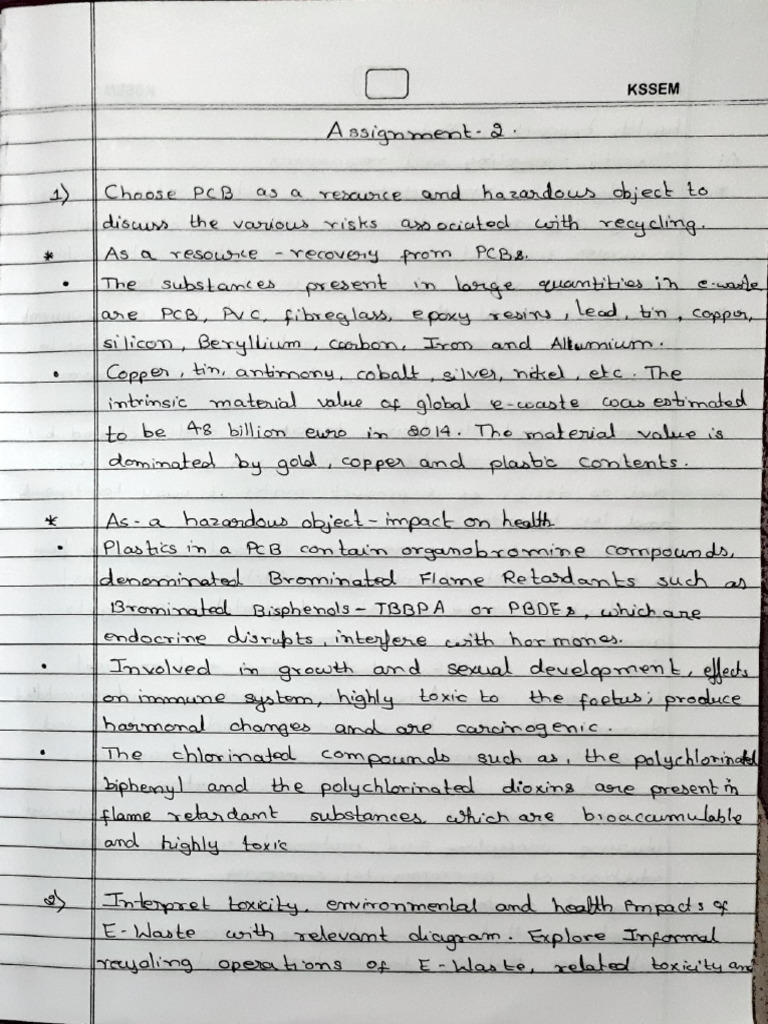 KSSEM
Assignment-2.
1) Choose PCB as a resource and hazardous object to
discuss the various risks associated with recycling.
* As a resource - recovery from PCBs.
• The substances present in large quantities in e-waste
are PCB, PVC, fibreglass, epoxy resins, lead, tin, copper,
silicon, Beryllium, carbon, Iron and Allumium.
• Copper, tin, antimony, cobalt, silver, nickel, etc. The
intrinsic material value of global e-waste was estimated
to be 48 billion euro in 2014. The material value is
dominated by gold, copper and plastic contents.
* As-a hazardous object - impact on health
• Plastics in a PCB contain organobromine compounds,
denominated Brominated Flame Retardants such as
Brominated Bisphenols - TBBPA or PBDEs, which are
endocrine disrupts, interfere with hormones.
• Involved in growth and sexual development, effects
on immune system, highly toxic to the foetus; produce
harmonal changes and are carcinogenic.
• The chlorinated compounds such as, the polychlorinated
biphenyl and the polychlorinated dioxins are present in
flame retardant substances which are bioaccumulable
and highly toxic
2) Interpret toxicity, environmental and health impacts of
E-Waste with relevant diagram. Explore Informal
recycling operations of E-Waste, related toxicity and